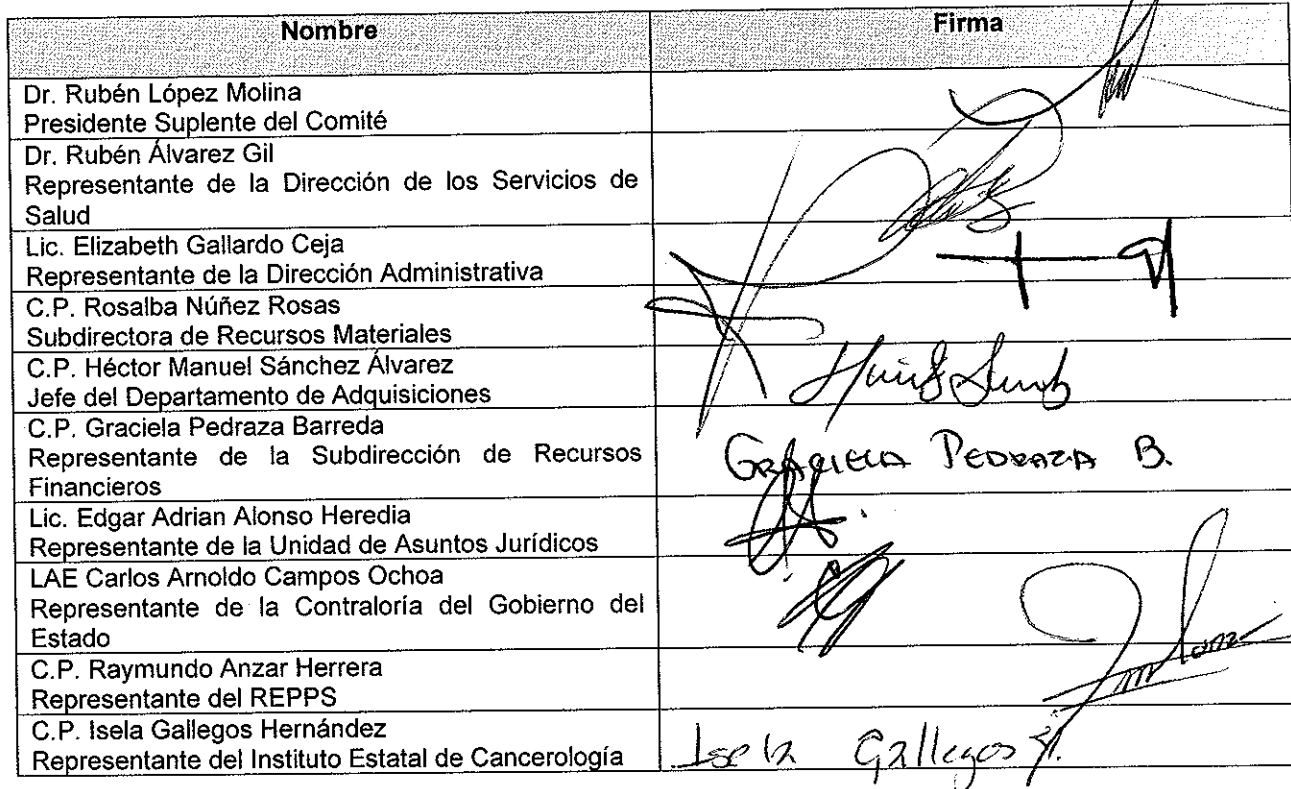 Nombre Firma
Dr. Rubén López Molina
Presidente Suplente del Comité
Dr. Rubén Álvarez Gil
Representante de la Dirección de los Servicios de
Salud
Lic. Elizabeth Gallardo Ceja
Representante de la Dirección Administrativa
C.P. Rosalba Núñez Rosas
Subdirectora de Recursos Materiales
C.P. Héctor Manuel Sánchez Álvarez
Jefe del Departamento de Adquisiciones
C.P. Graciela Pedraza Barreda
Representante de la Subdirección de Recursos
Financieros
GRACIELA PEDRAZA B.
Lic. Edgar Adrian Alonso Heredia
Representante de la Unidad de Asuntos Jurídicos
LAE Carlos Arnoldo Campos Ochoa
Representante de la Contraloría del Gobierno del
Estado
C.P. Raymundo Anzar Herrera
Representante del REPPS
C.P. Isela Gallegos Hernández
Representante del Instituto Estatal de Cancerología
Isela Gallegos H.